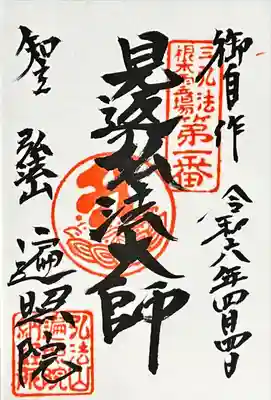 御自作
令和六年四月四日
三弘法
根本霊場
第一番
見返弘法大師
知立
弘法山
遍照院
弘法山
遍照院